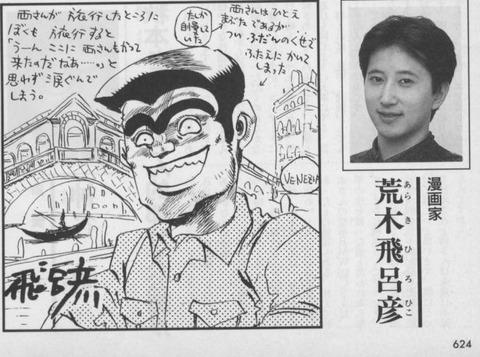 西さんが 旅行したところに
ぼくも 旅行すると
「うーん ここに 西さんもかつて
来たのだなあ……」と
思わず涙ぐんで
しまう。
たしか
自慢して
いた
西さんはひとえ
まぶたであるが
つい ふだんのくせで
ふたえに かいて
しまった
VENEZIA
飛呂彦
漫画家
荒木飛呂彦
あらきひろひこ
624